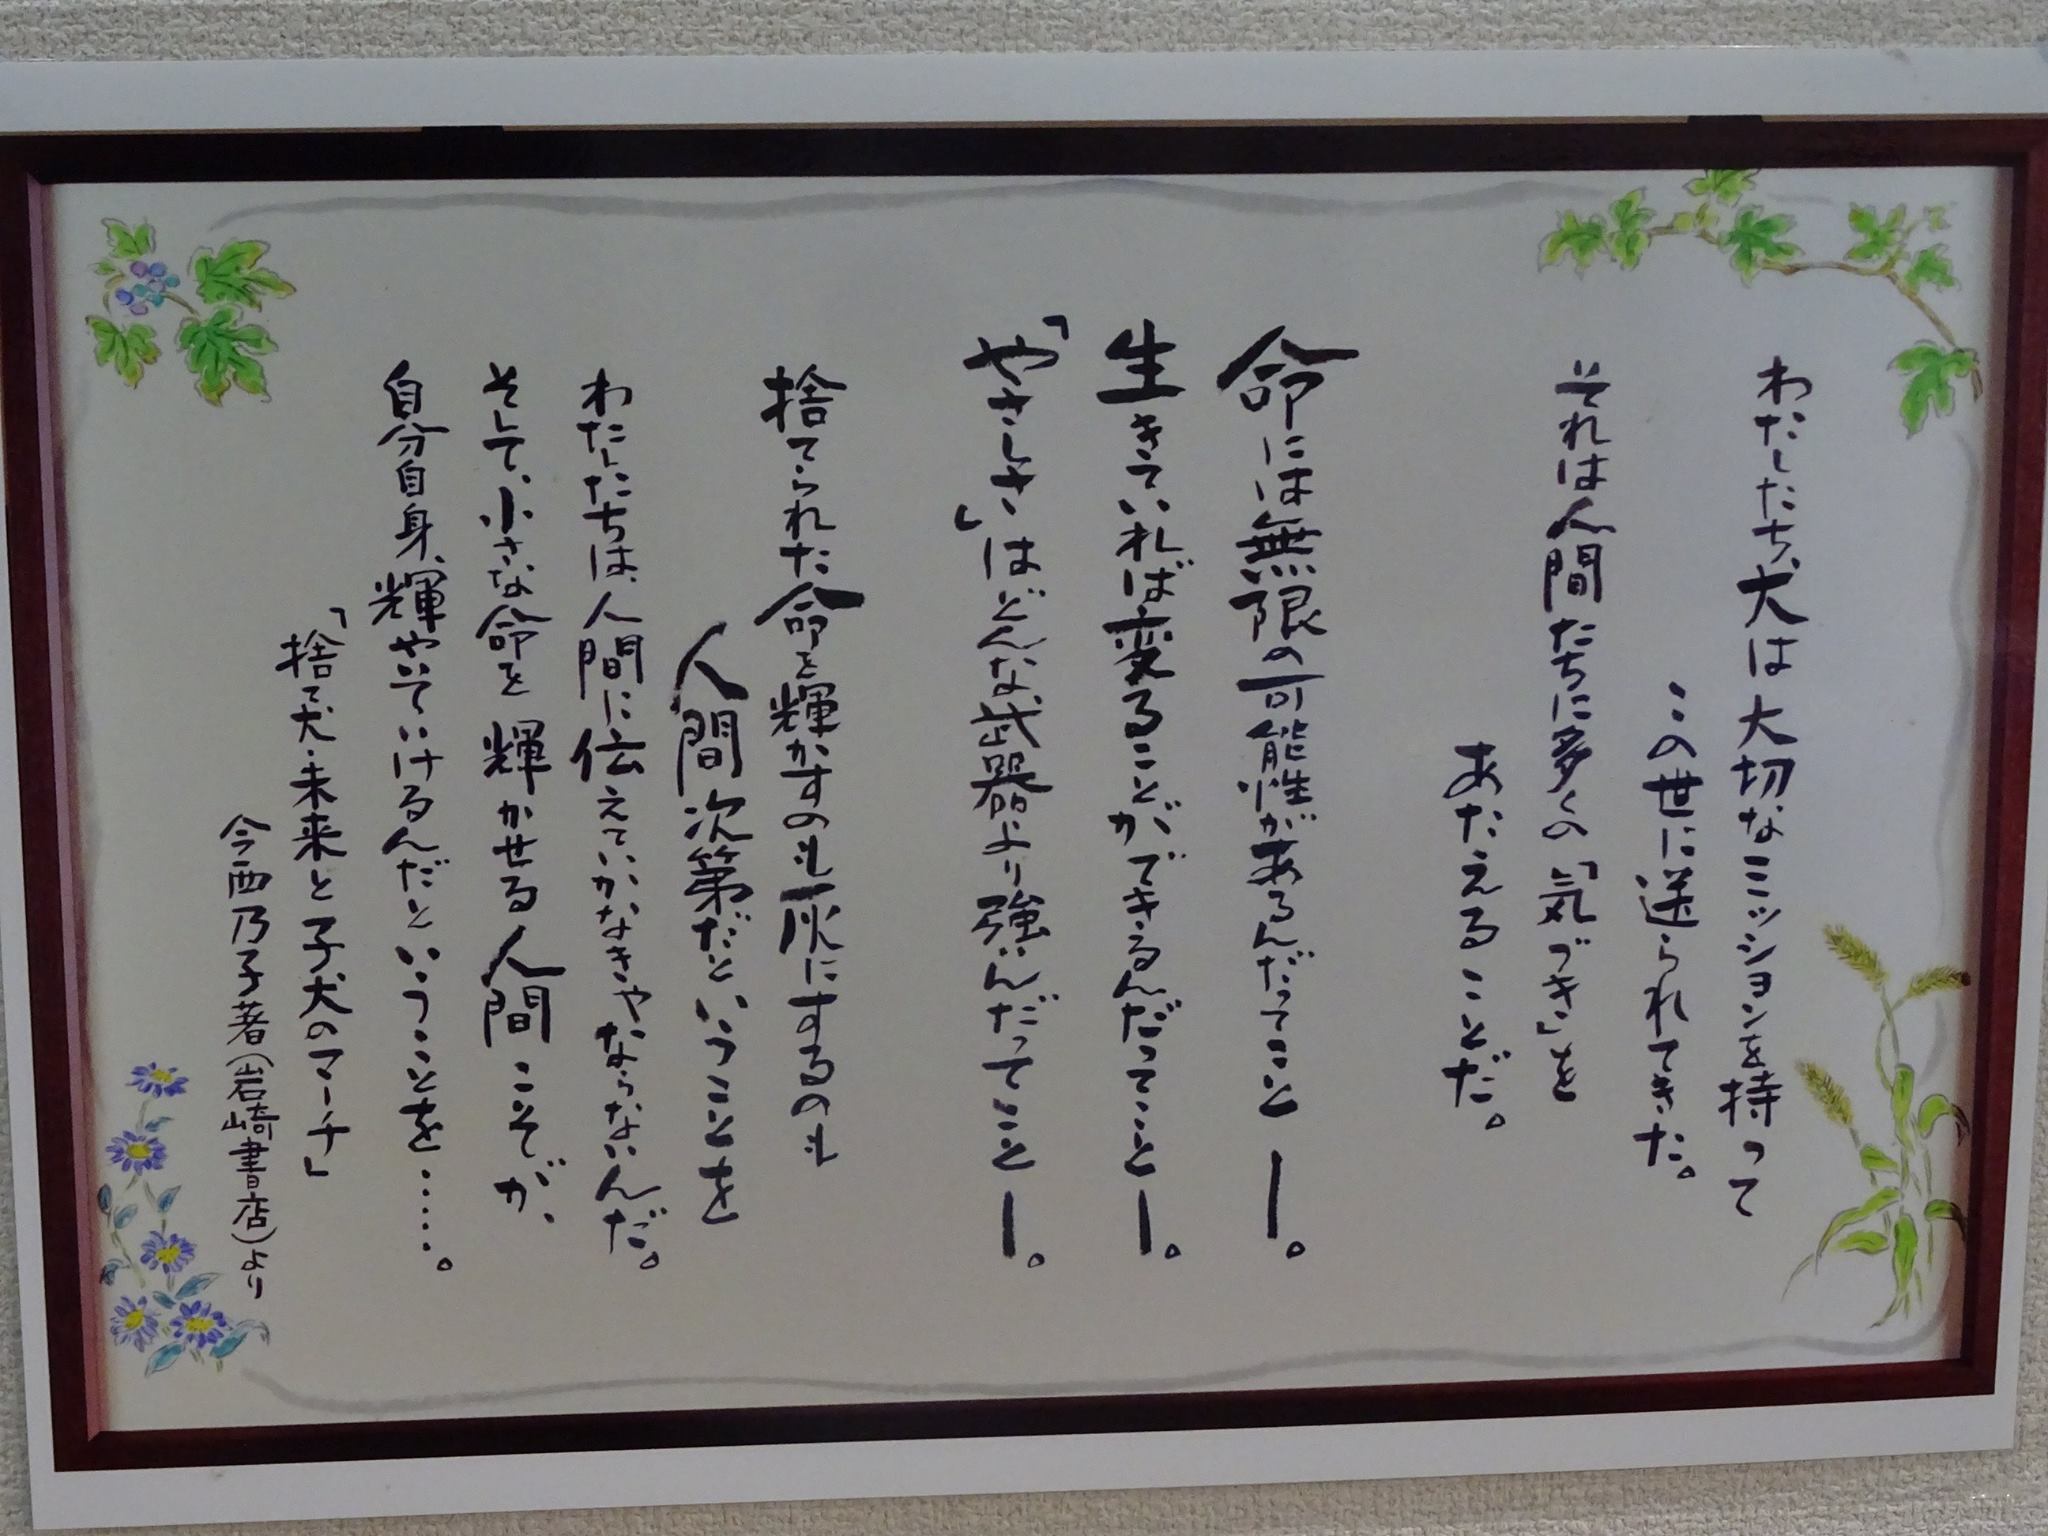 わたしたち、犬は大切なミッションを持って
この世に送られてきた。
それは人間たちに多くの「気づき」を
あたえることだ。
命には無限の可能性があるんだってこと―。
生きていれば変ることができるんだってこと―。
「やさしさ」はどんな武器より強いんだってこと―。
捨てられた命を輝かすのも灰にするのも
人間次第だということを
わたしたちは、人間に伝えていかなきゃならないんだ。
そして、小さな命を輝かせる人間こそが、
自分自身、輝やいていけるんだということを……。
「捨て犬・未来と子犬のマーチ」
今西乃子著（岩崎書店）より